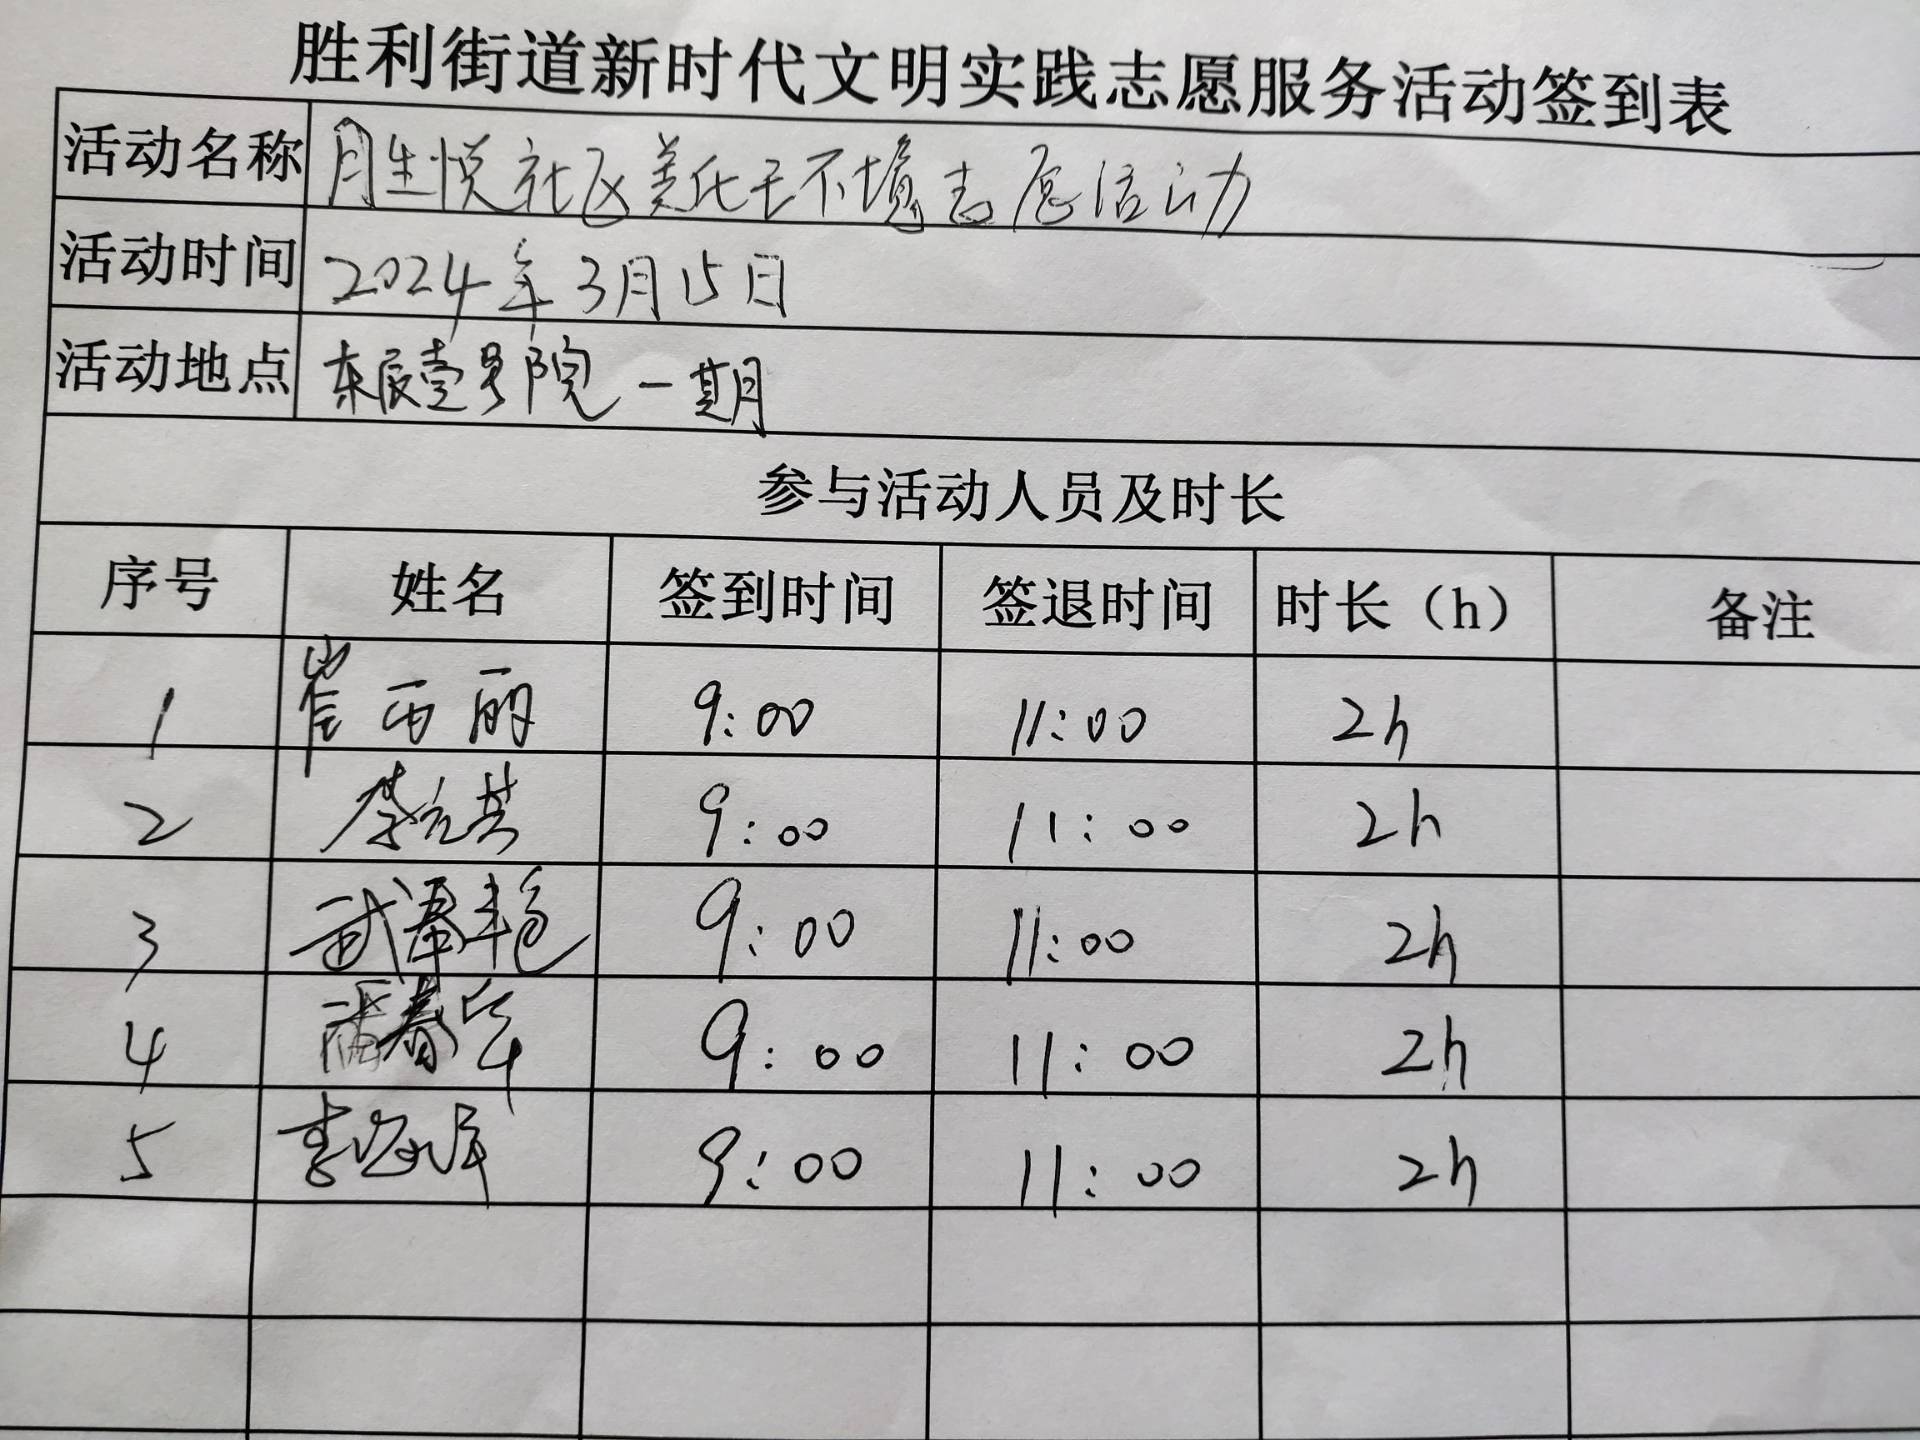 胜利街道新时代文明实践志愿服务活动签到表
活动名称 胜悦社区美化环境志愿活动
活动时间 2024年3月15日
活动地点 东辰壹号院一期
参与活动人员及时长
序号 姓名 签到时间 签退时间 时长（h） 备注
1 崔西丽 9:00 11:00 2h
2 9:00 11:00 2h
3 9:00 11:00 2h
4 9:00 11:00 2h
5 9:00 11:00 2h